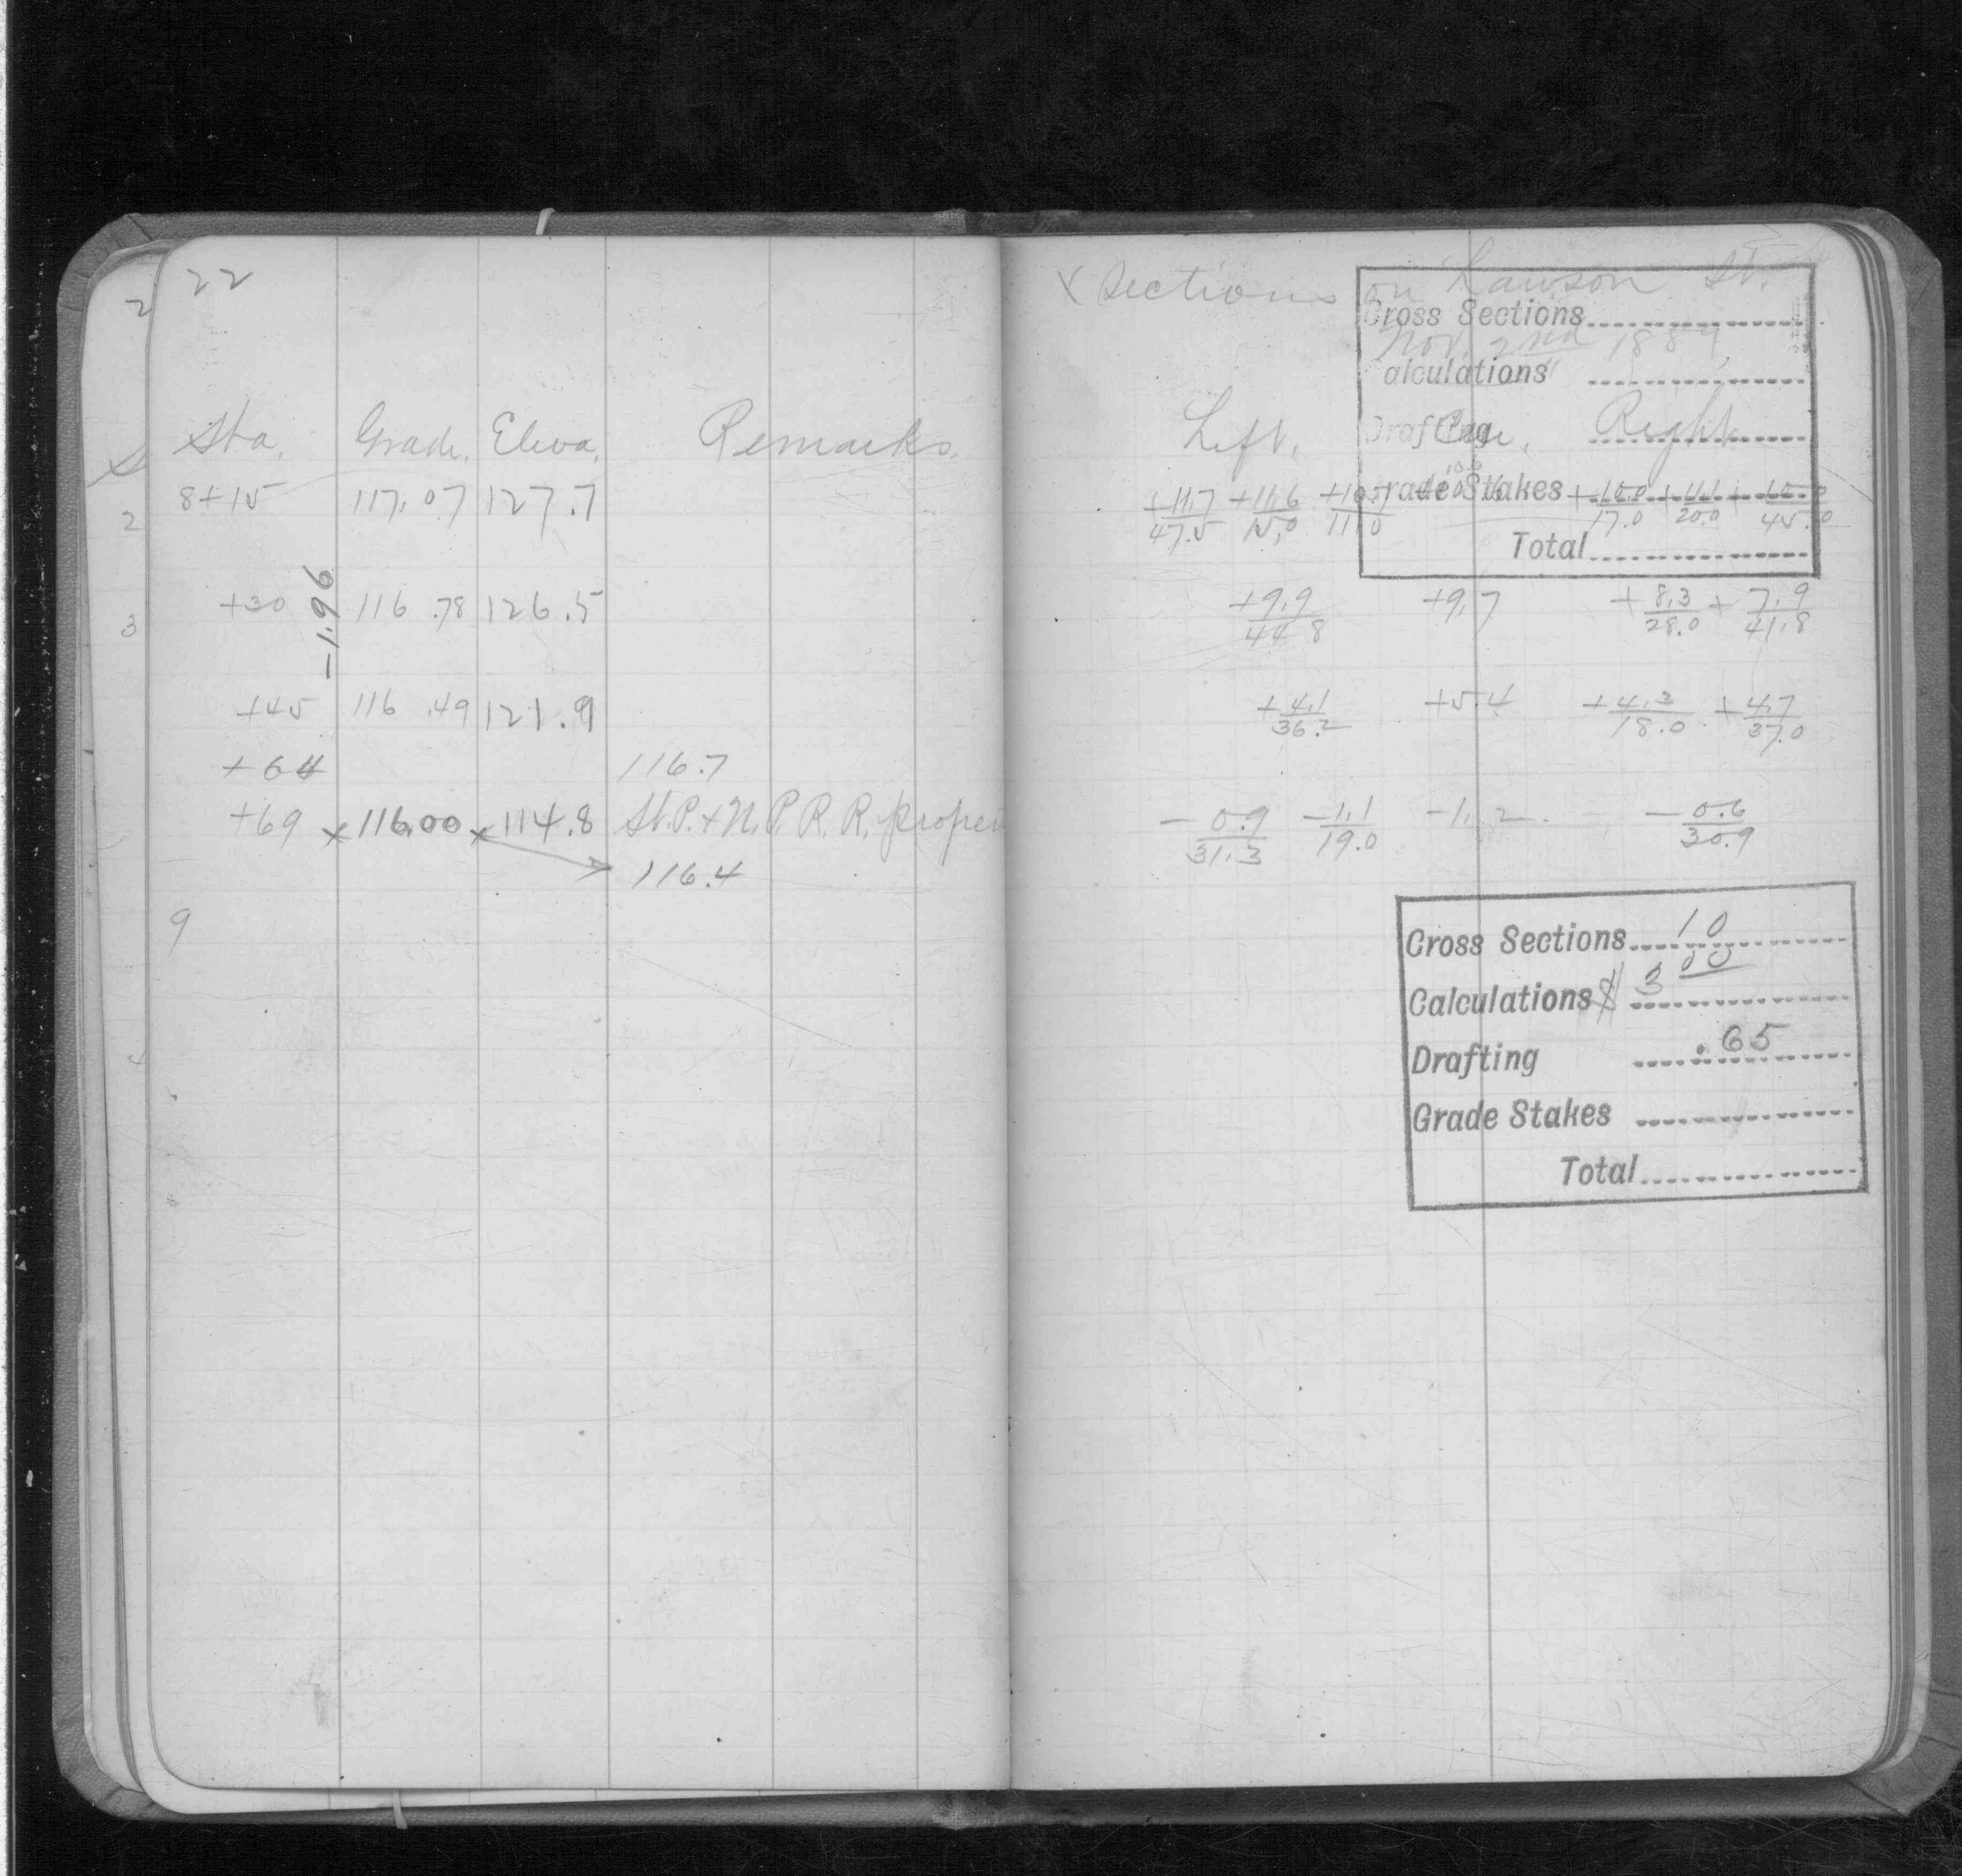 22
Sta. Grade. Eleva. Remarks.
8+15 117.07 127.7
-1.96
+30 116.78 126.5
+45 116.49 121.9
+64 116.7
+69 x 116.00 x 114.8 St. P. + N. P. R. R. proper
116.4
9
2
2
3
4
X Sections on Lawson St.
Nov. 2nd 1889
Cross Sections
alculations
Drafting
rade Stakes
Total
Left. Cen. Right
+11.7/47.5 +11.6/15.0 +10.7/11.0 +10.6 +10.0/17.0 +11.1/20.0
+9.9/44.8 +9.7 +8.3/28.0 +7.9/41.8
+4.1/36.2 +5.4 +4.2/18.0 +4.7/37.0
-0.9/31.3 -1.1/19.0 -1.2 -0.6/30.9
Cross Sections 10
Calculations $ 3 00
Drafting .65
Grade Stakes
Total